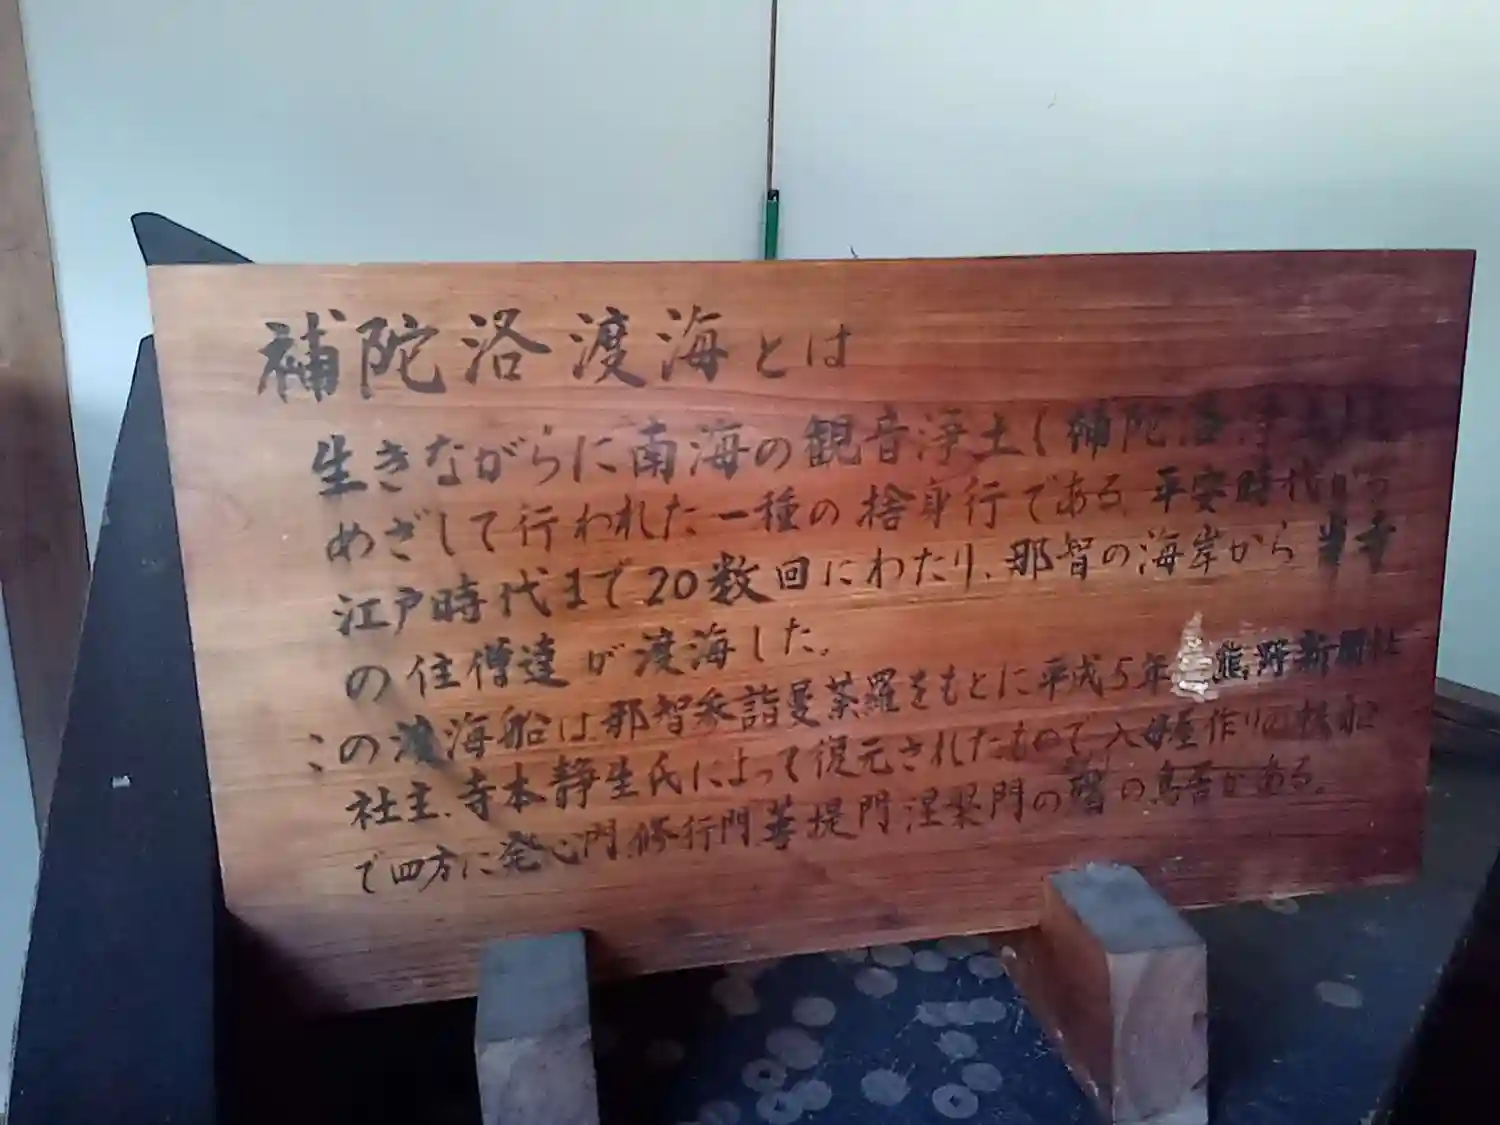 補陀洛渡海とは
生きながらに南海の観音浄土(補陀洛浄土)を
めざして行われた一種の捨身行である、平安時代から
江戸時代まで20数回にわたり、那智の海岸から当寺
の住僧達が渡海した。
この渡海船は那智参詣曼荼羅をもとに平成5年 熊野新聞社
社主、寺本静生氏によって復元されたもので、入母屋作りの
で四方に発心門、修行門菩提門涅槃門の の鳥居がある。